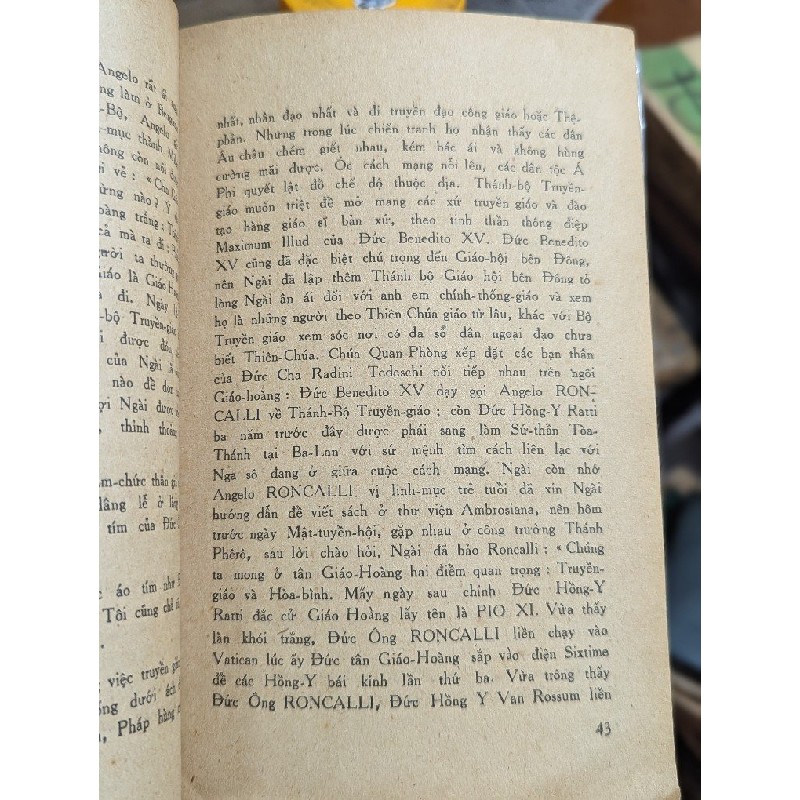 Angelo
làm ở
-Bộ, Angelo
-mục thành
ông còn nói
ri về : « Con
ừng nào ? Y
oàng trắng :
cả mà ta đi :
gười ta thường
giáo là Giác
a đi. Ngày
-bộ Truyền-giáo
được
của Ngài
nào để
ợi Ngài được
thỉnh thoảng
-chức
lãng lễ ở
tím của Đức
áo tím như
Tôi cũng chế
việc truyền
dưới ách
Pháp hùng
nhất, nhân đạo nhất và đi truyền đạo công giáo hoặc Thệ-
phản. Nhưng trong lúc chiến tranh họ nhận thấy các dân
Âu châu chém giết nhau, kém bác ái và không hùng
cường mãi được. Óc cách mạng nổi lên, các dân tộc Á
Phi quyết lật đổ chế độ thuộc địa. Thánh-bộ Truyền-
giáo muôn triệt để mở mang các xứ truyền-giáo và đào
tạo hàng giáo sĩ bản xứ, theo tinh thần thông điệp
Maximum Illud của Đức Benedito XV. Đức Benedito
XV cũng đã đặc biệt chú trọng đến Giáo-hội bên Đông,
nên Ngài đã lập thêm Thánh bộ Giáo hội bên Đông tỏ
lòng Ngài ân ái đối với anh em chính-thống-giáo và xem
họ là những người theo Thiên Chúa giáo từ lâu, khác với Bộ
Truyền giáo xem sóc nơi có đa số dân ngoại đạo chưa
biết Thiên-Chúa. Chúa Quan-Phòng xếp đặt các bạn thân
của Đức Cha Radini Tedeschi nối tiếp nhau trên ngôi
Giáo-hoàng : Đức Benedito XV dạy gọi Angelo RON-
CALLI về Thánh-Bộ Truyền-giáo ; còn Đức Hồng-Y Ratti
ba năm trước đây được phái sang làm Sứ-thần Tòa-
Thánh tại Ba-Lan với sứ mệnh tìm cách liên lạc với
Nga sô đang ở giữa cuộc cách mạng. Ngài còn nhớ
Angelo RONCALLI vị linh-mục trẻ tuổi đã xin Ngài
hướng dẫn để viết sách ở thư viện Ambrosiana, nên hôm
trước ngày Mật-tuyển-hội, gặp nhau ở công trường Thánh
Phêrô, sau lời chào hỏi, Ngài đã bảo Roncalli : « Chúng
ta mong ở tân Giáo-Hoàng hai điểm quan trọng : Truyền-
giáo và Hòa-bình. Mấy ngày sau chính Đức Hồng-Y
Ratti đắc cử Giáo Hoàng lấy tên là PIO XI. Vừa thấy
làn khói trắng, Đức Ông RONCALLI liền chạy vào
Vatican lúc ấy Đức tân Giáo-Hoàng sắp vào điện Sixtime
để các Hồng-Y bái kính lần thứ ba. Vừa trông thấy
Đức Ông RONCALLI, Đức Hồng Y Van Rossum liền
43